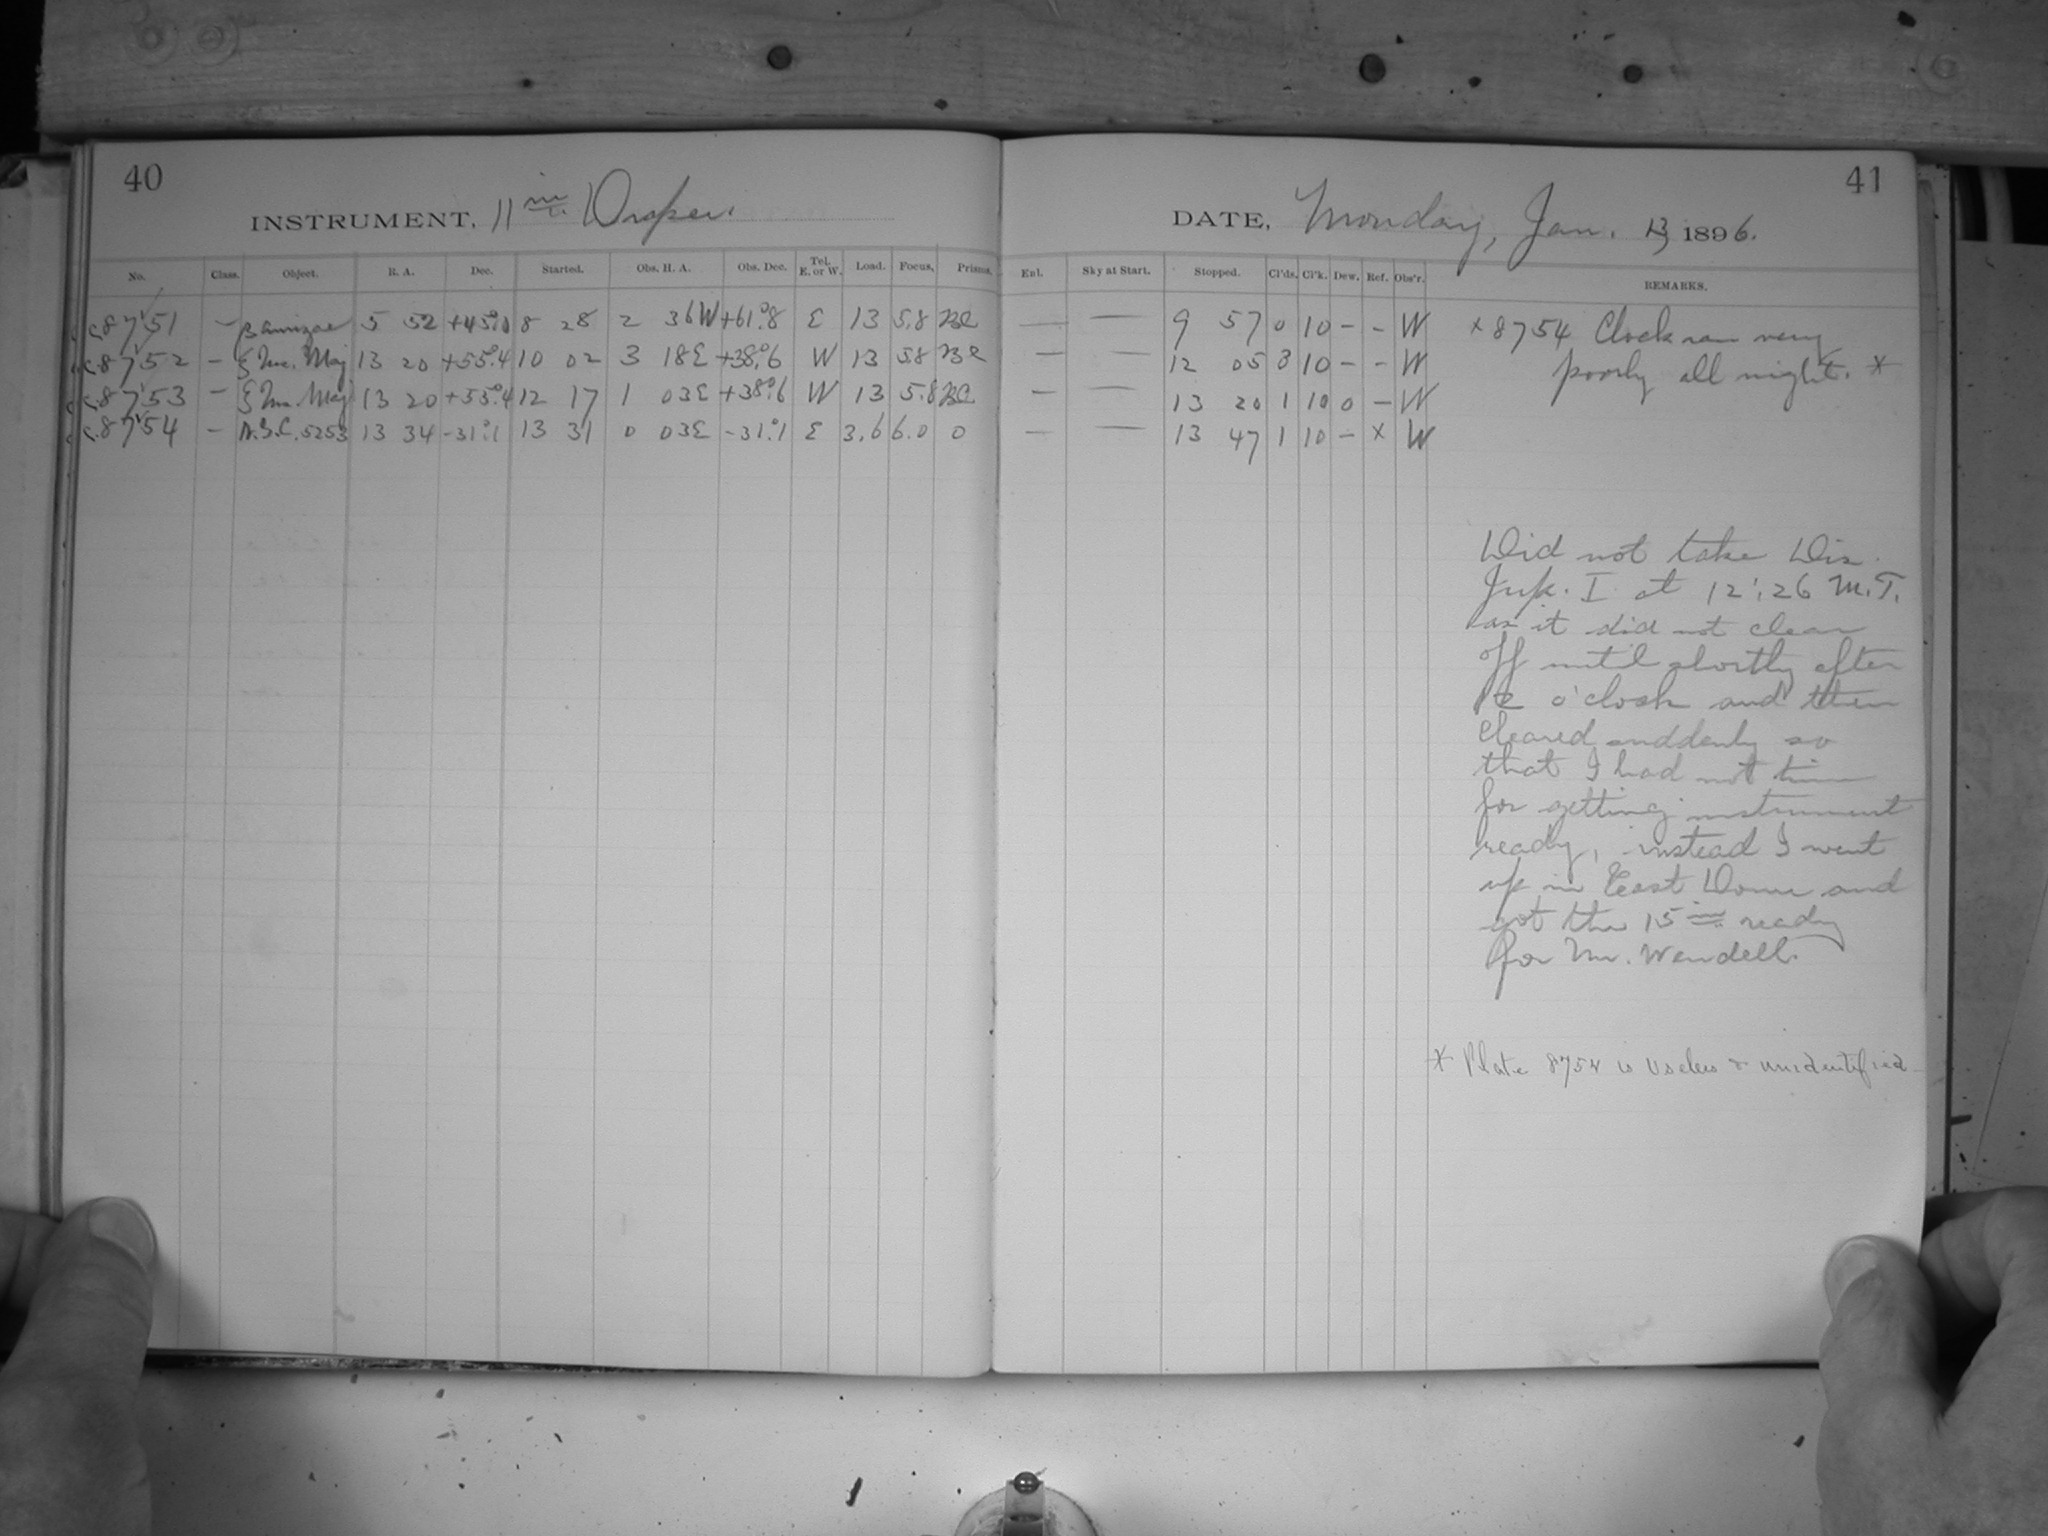 40
INSTRUMENT, 11 in. Draper.
No. Class. Object. R. A. Dec. Started. Obs. H. A. Obs. Dec. Tel. E. or W. Load. Focus. Prisms.
C.8751 – β Aurigae 5 52 +45°.0 8 28 2 36W +61°.8 E 13 5.8 BC
C.8752 – ζ Urs. Maj 13 20 +55°.4 10 02 3 18E +38°.6 W 13 5.8 BC
C.8753 – ζ Urs. Maj 13 20 +55°.4 12 17 1 03E +38°.6 W 13 5.8 BC
C.8754 – N.G.C. 5253 13 34 -31°.1 13 31 0 03E -31°.1 E 3.6 6.0 0
41
DATE, Monday, Jan. 13, 1896.
Enl. Sky at Start. Stopped. Cl'ds. Cl'k. Dew. Ref. Obs'r. REMARKS.
— — 9 57 0 10 – – W
— — 12 05 3 10 – – W
— — 13 20 1 10 0 – W
— — 13 47 1 10 – × W
× 8754 Clock ran very
poorly all night. *
Did not take Dis.
Jup. I. at 12:26 M.T.
as it did not clear
off until shortly after
12 o'clock and then
cleared suddenly so
that I had not time
for getting instrument
ready, instead I went
up in East Dome and
got the 15 in. ready
for Mr. Wendell.
* Plate 8754 is useless & unidentified